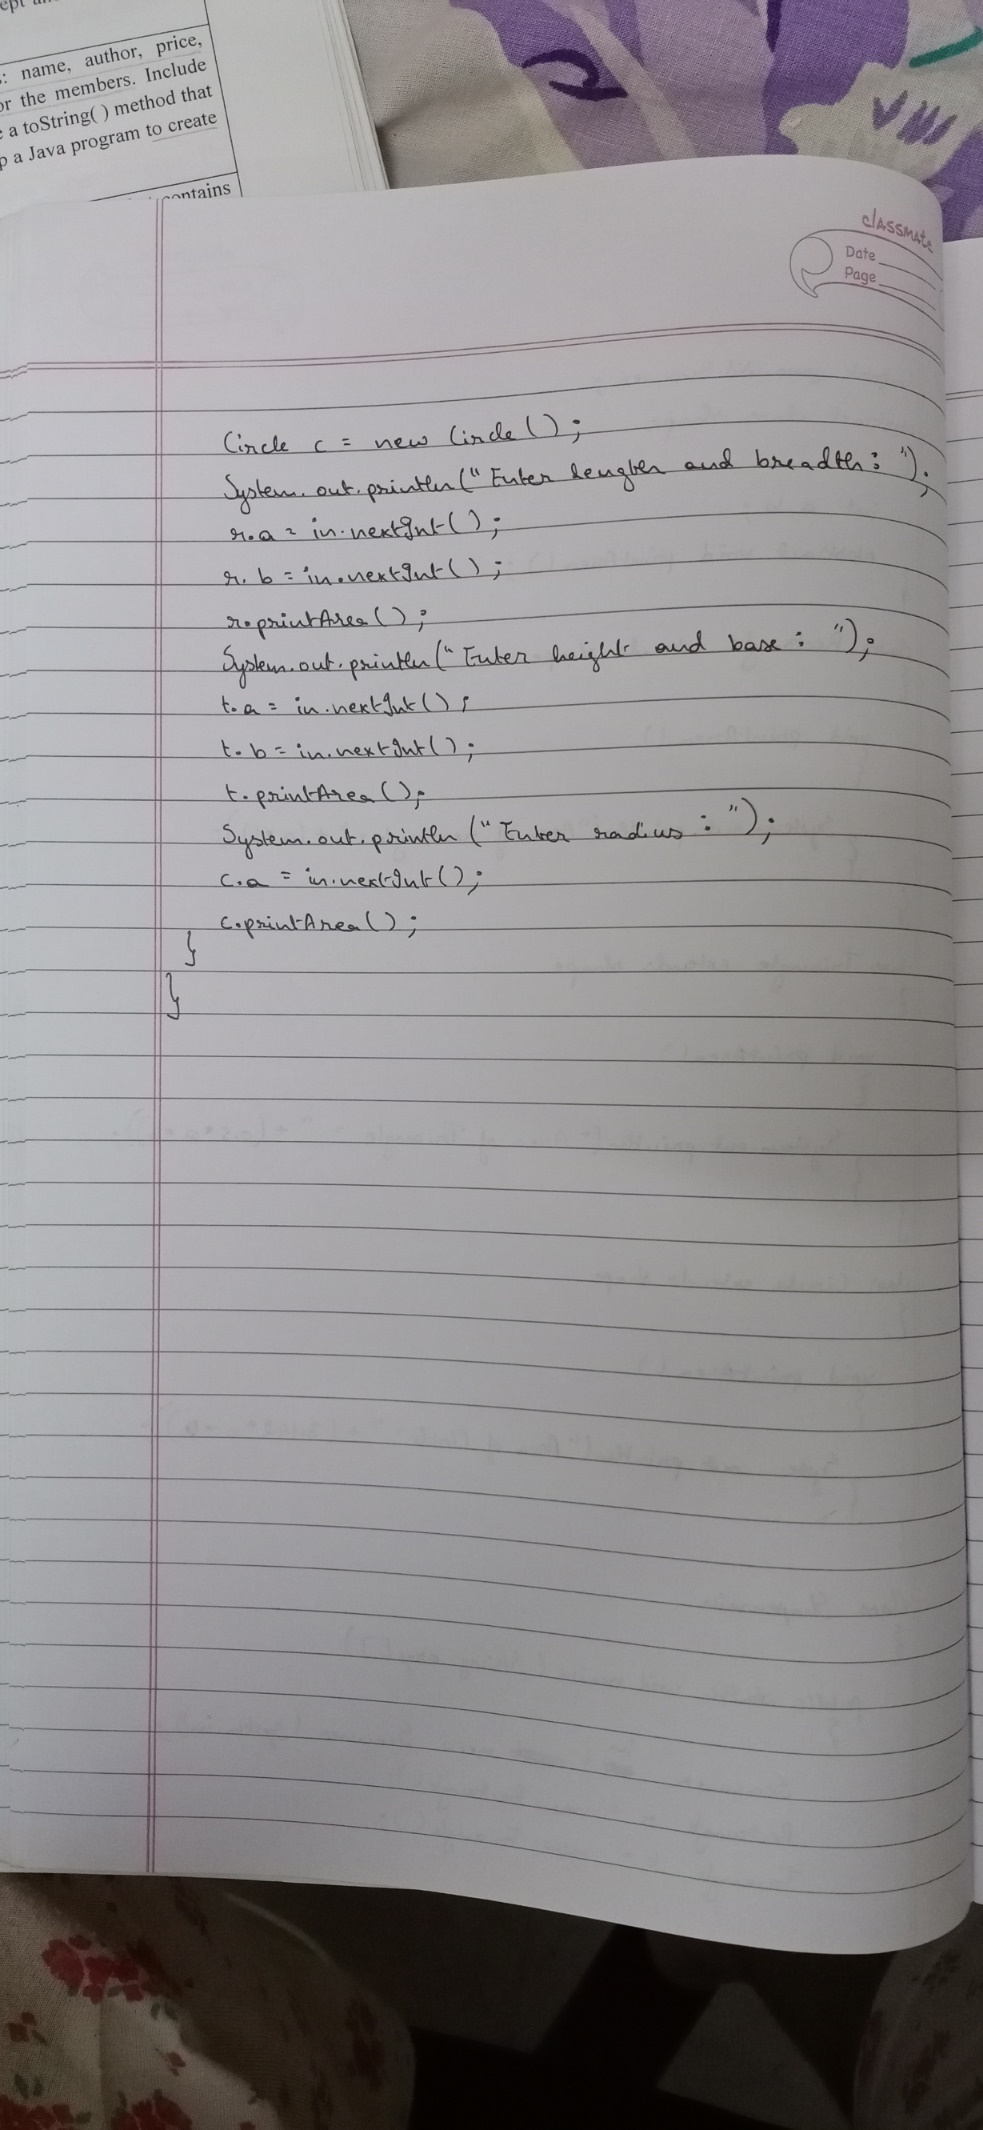 ept
: name, author, price,
or the members. Include
a toString( ) method that
p a Java program to create
contains
classmate
Date
Page
Circle c = new Circle();
System.out.println("Enter length and breadth: ");
r.a = in.nextInt();
r.b = in.nextInt();
r.printArea();
System.out.println("Enter height and base: ");
t.a = in.nextInt();
t.b = in.nextInt();
t.printArea();
System.out.println("Enter radius: ");
c.a = in.nextInt();
c.printArea();
}
}